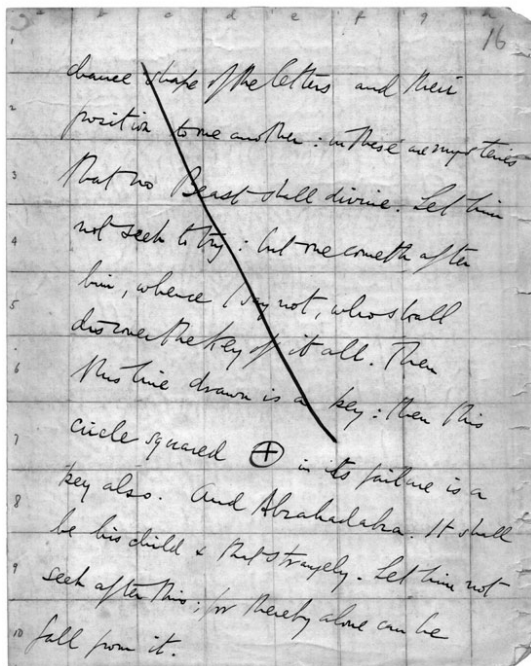 a b c d e f g h
16
1
chance shape of the letters and their
2
position to one another: in these are mysteries
3
that no Beast shall divine. Let him
4
not seek to try: but one cometh after
him, whence I say not, who shall
5
discover the Key of it all. Then
6
this line drawn is a key: then this
7
circle squared ⊕ in its failure is a
key also. And Abrahadabra. It shall
8
be his child & that strangely. Let him not
9
seek after this; for thereby alone can he
10
fall from it.